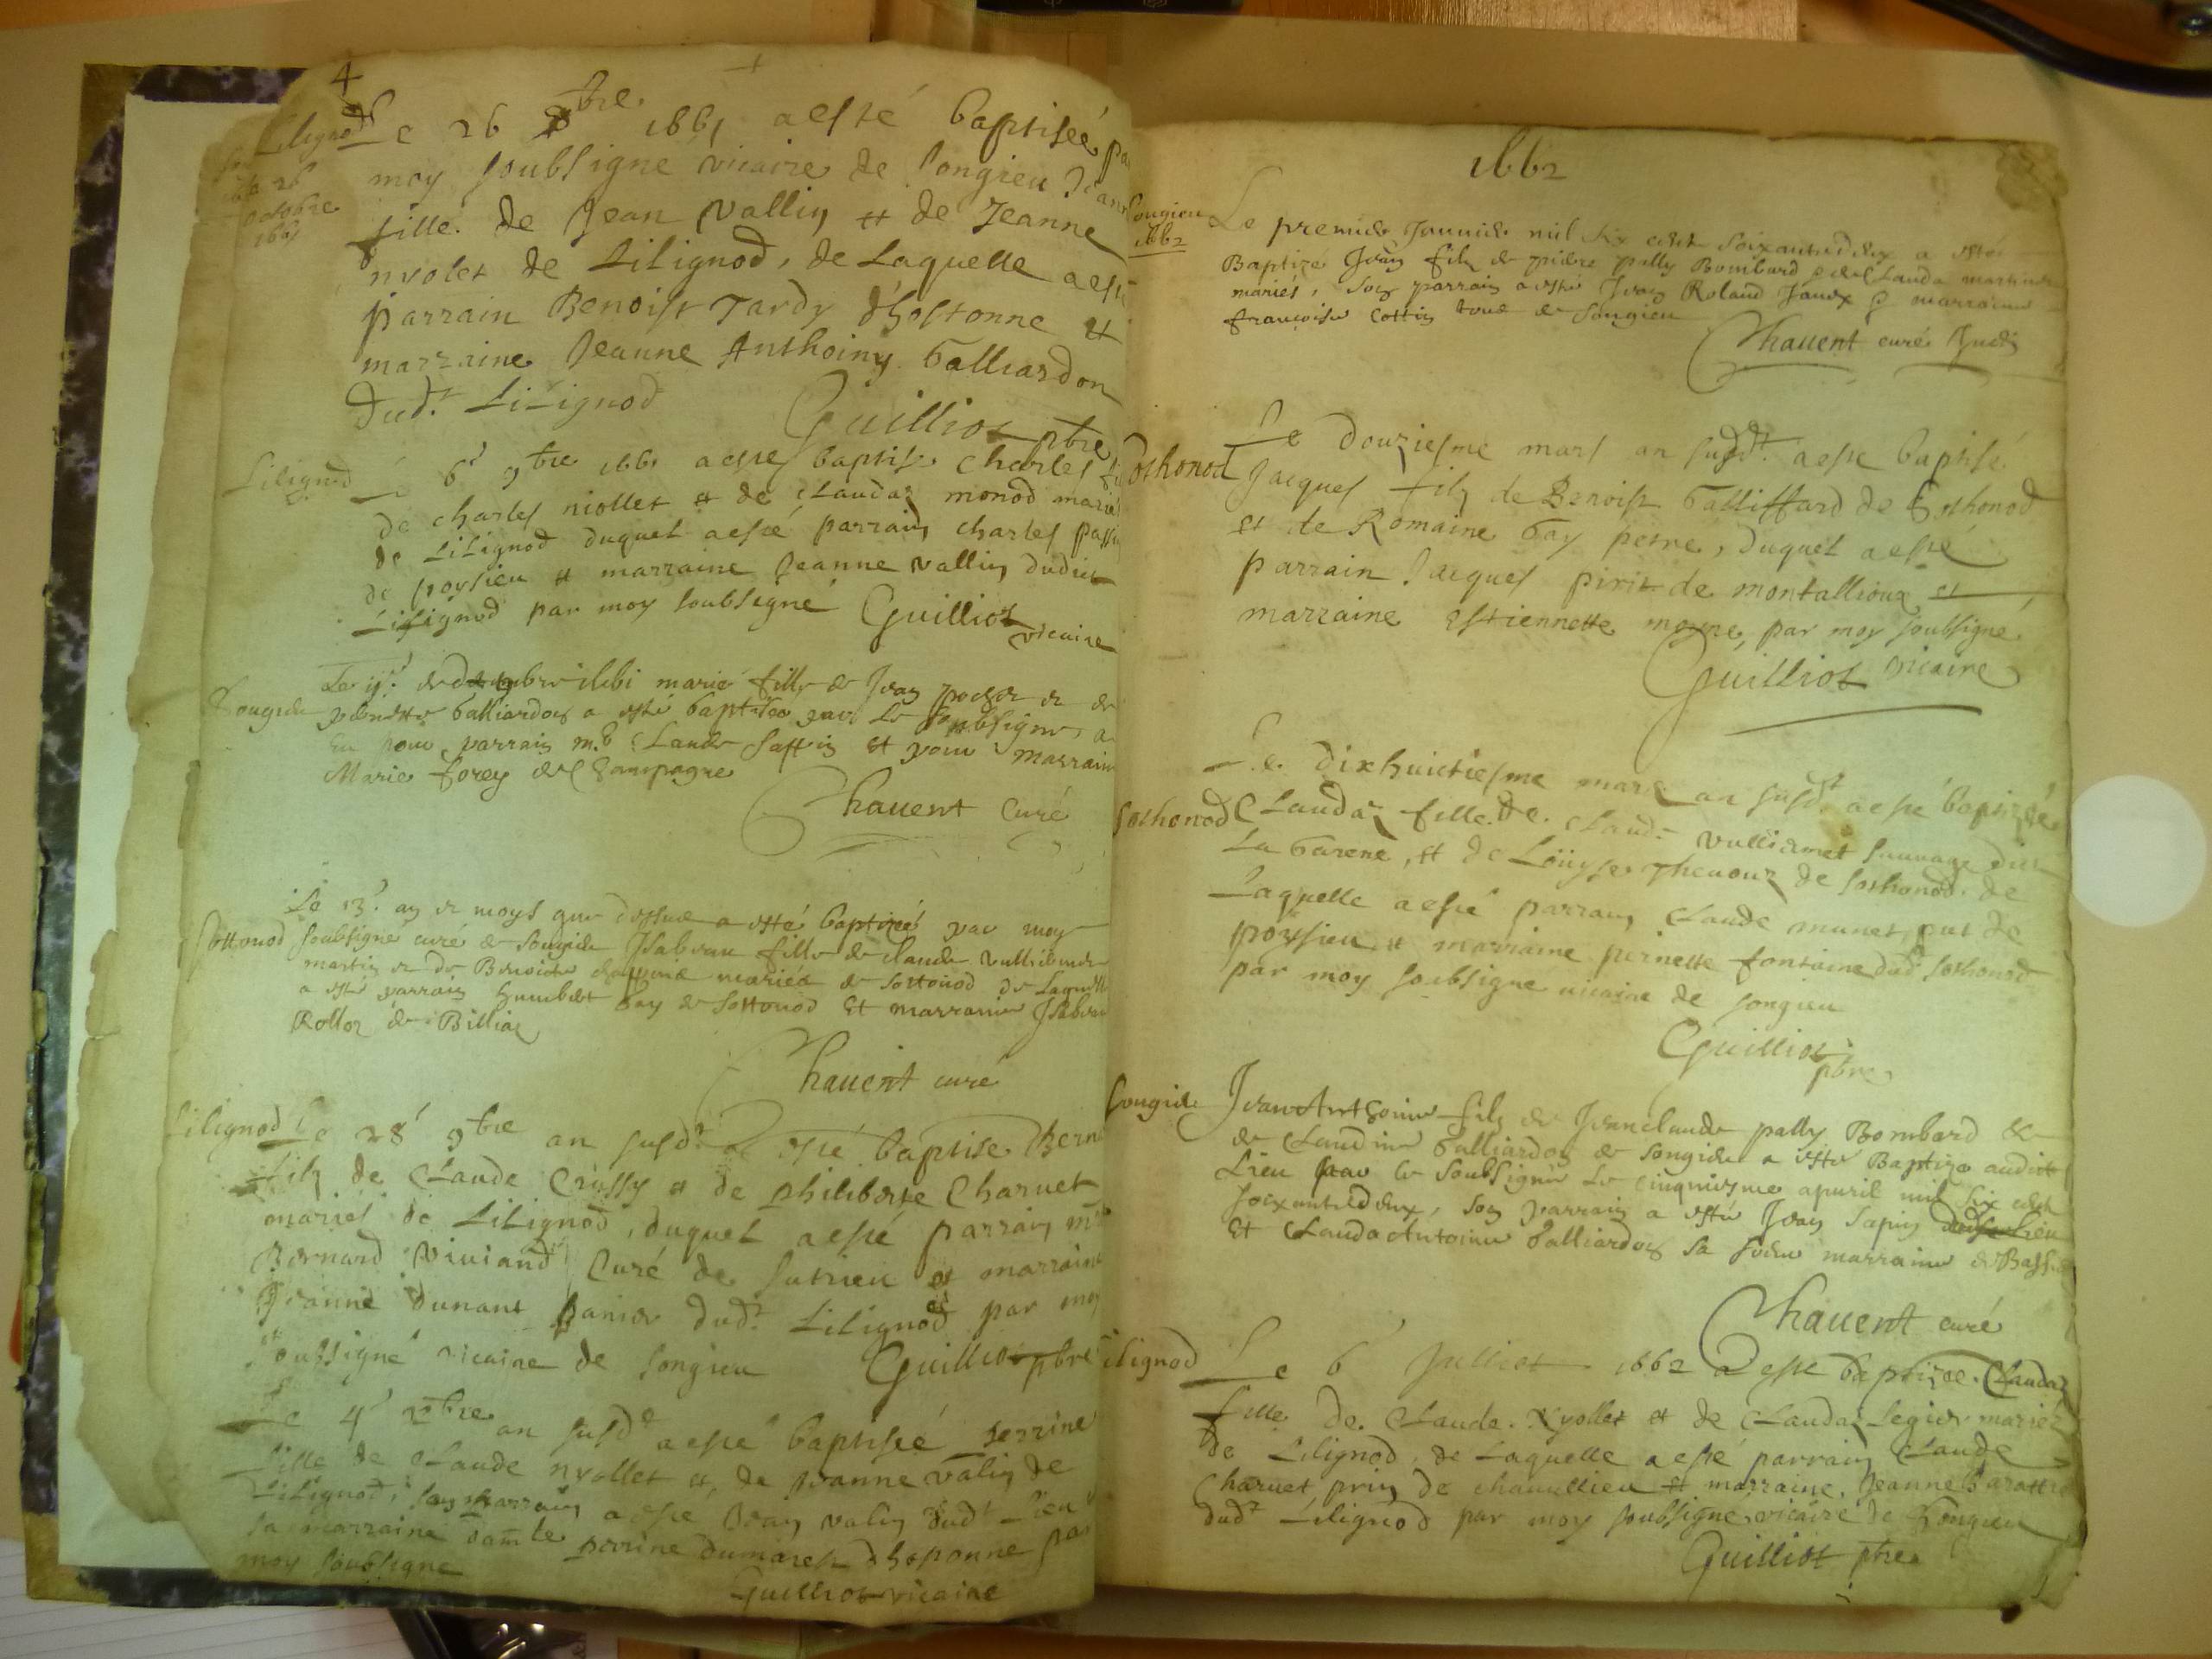 4
Lilignod
26
octobre
1661
Le 26 8bre 1661 a esté baptiseé par
moy soubsigne vicaire de songieu Jeanne
fille de Jean Vallin et de Jeanne
nyolet de Lilignod, de Laquelle a esté
parrain Benoist Tardy d'hostonne et
marraine Jeanne Anthoiny balliardon
dud.t Lilignod
Guilliot pbre
Lilignod
Le 6e 9bre 1661 a este baptise charles fils
de charles niollet et de claudaz monod mariés
de Lilignod duquel a esté parrain charles passi
de poysieu et marraine Jeanne vallin dudict
Lilignod par moy soubsigné Guilliot
vicaire
Songieu
Le 11e de decembre 1661 marie fille de Jean et de
pernette balliardon a esté baptisée par le soubsigne a
eu pour parrain m.e Claude saffin et pour marraine
Marie forey de Champagne
Chauent Curé
Sottonod
Le 13e an et moys que dessus a esté baptizeé par moy
soubsigné curé de songieu Isabeau fille de claude vulliemet
martin et de Benoiste mariés de sottonod de Laquelle
a esté parrain humbert bay de sottonod et marraine Isabeau
Rollet de Billiat
Chauent curé
Lilignod
Le 28e 9bre an susd.t a esté baptise Bernard
filz de Claude Crussy et de philiberte Charuet
mariés de Lilignod, duquel a esté parrain m.re
Bernard Viuiand Curé de sutrieu et marraine
Jeanne dunant panier dud.t Lilignod par moy
soussigné vicaire de songieu Guilliot pbre
Le 4e xbre an susd.t a esté baptiseé perrine
fille de Claude nyollet et de Jeanne valin de
Lilignod, son parrain a esté Jean valin dud.t Lieu
sa marraine dam.le perrine dumarest d'hoponne par
moy soubsigne
Guilliot vicaire
1662
Songieu
1662
Le premier Januier mil six cent soixante deux a esté
Baptize Jean filz de pierre pally Bombard & de Clauda martin
mariés, son parrain a esté Jean Roland Janex & marraine
francoise Cottin tous de Songieu
Chauent curé Judi
sothonod
Le douziesme mars an susd.t a esté baptisé
Jacques filz de Benoist balliffard de sothonod
et de Romaine bay perne, duquel a esté
parrain Jacques pirit de montallioux et
marraine Estiennette moyne, par moy soubsigne
Guilliot vicaire
sothonod
Le dixhuictiesme mars an susd.t a esté baptizée
Claudaz fille de claude vulliemet sauuage dit
La barene, et de Loüyse Theuoux de sothonod de
Laquelle a esté parrain Claude munet put de
poysieu et marraine pernette fontaine dud.t sothonod
par moy soubsigne vicaire de songieu
Guilliot
pbre
Songieu
Jean Anthoine filz de Jean claude pally Bombard &
de Claudine balliardon de songieu a esté Baptize audict
Lieu par le soubsigné le cinquiesme apuril mil six cent
soixante deux, son parrain a esté Jean Sapin dudict Lieu
Et Clauda Antoine balliardon sa soeur marraine
Chauent curé
Lilignod
Le 6e Julliet 1662 a este baptizee Claudaz
fille de Claude nyollet et de Claudaz Legier mariés
de Lilignod, de Laquelle a esté parrain Claude
Charuet prin de chauillieu et marraine Jeanne
dud.t Lilignod par moy soubsigne vicaire de songieu
Guilliot pbre